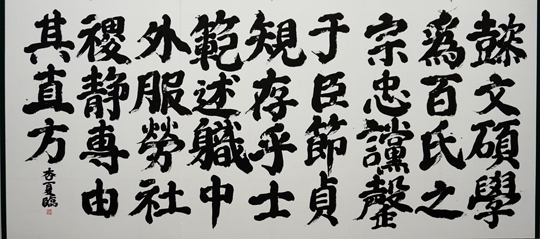 懿文碩學
爲百氏之
宗忠讜罄
于臣節貞
規存乎士
範述職中
外服勞社
稷靜專由
其直方
夏臨